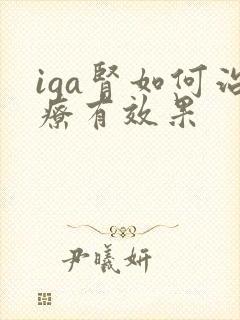 iga肾如何治
疗有效果
尹曦妍